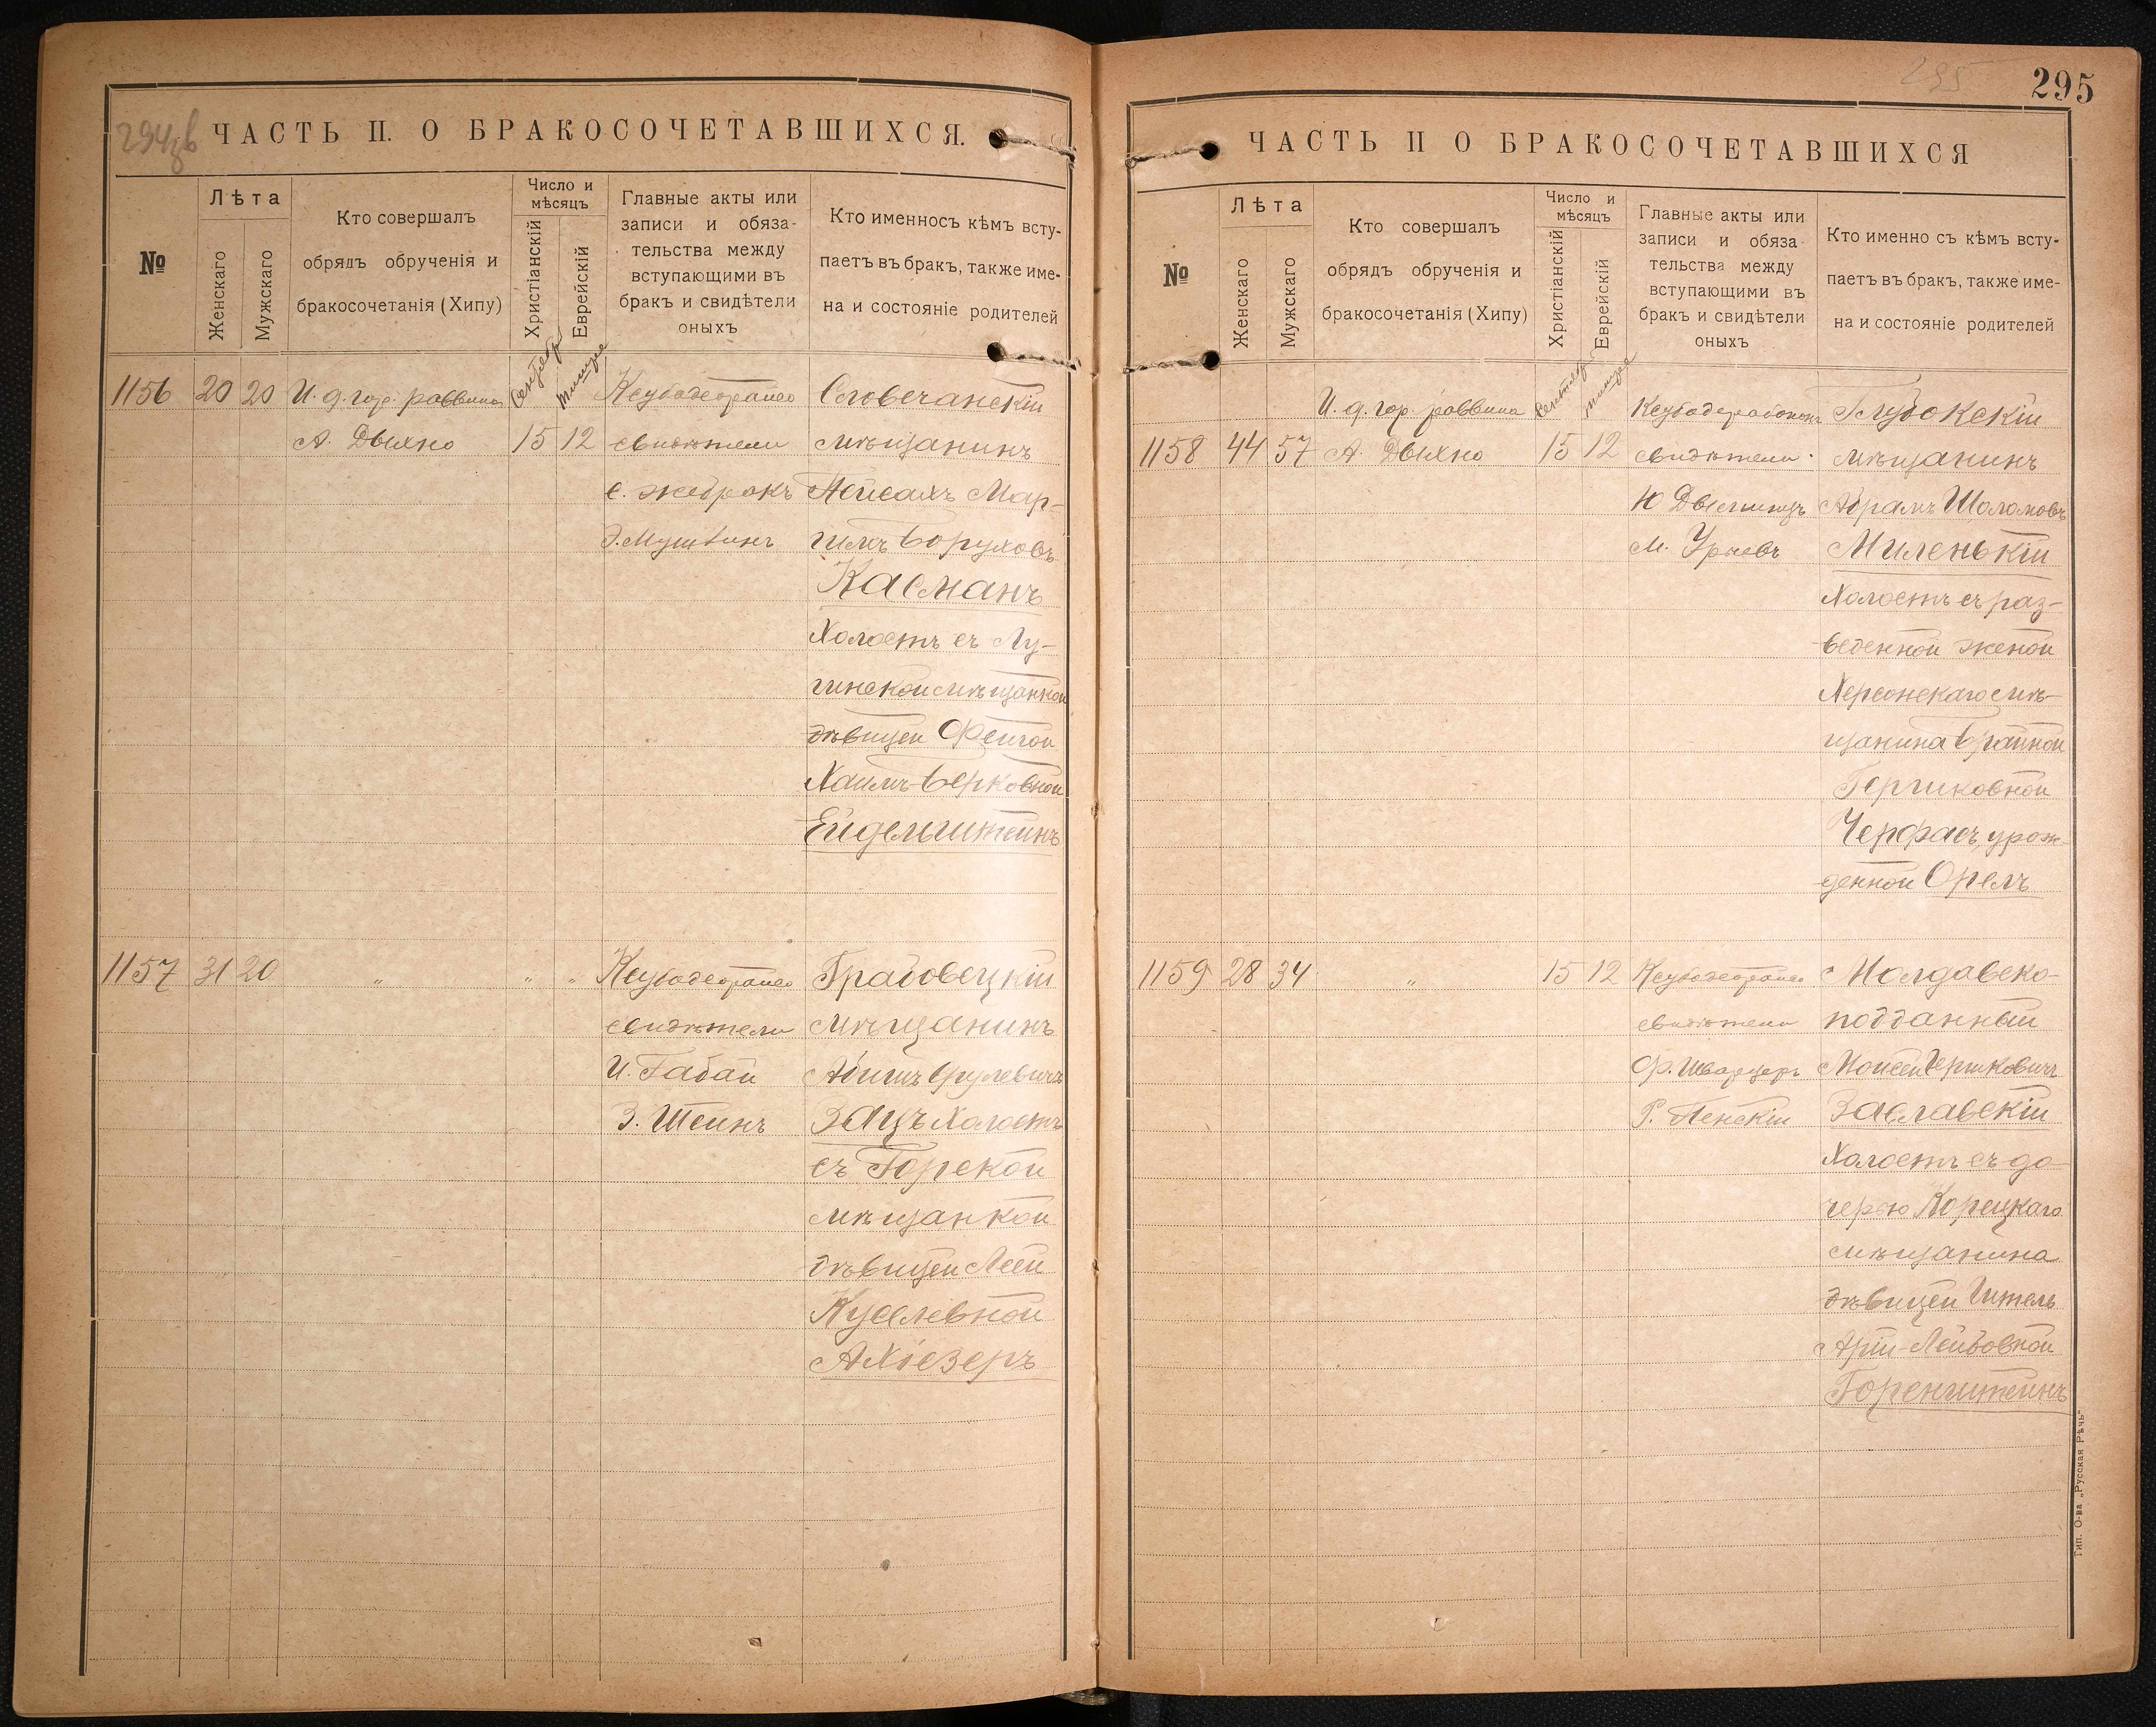 294зв
ЧАСТЬ II. О БРАКОСОЧЕТАВШИХСЯ.
№
Лѣта
Женскаго
Мужскаго
Кто совершалъ
обрядъ обрученія и
бракосочетанія (Хипу)
Число и
мѣсяцъ
Христіанскій
Еврейскій
Главные акты или
записи и обяза-
тельства между
вступающими въ
бракъ и свидѣтели
оныхъ
Кто именносъ кѣмъ всту-
паетъ въ бракъ, также име-
на и состояніе родителей
1156 20 20 И. д. гор. раввина Сентябр тишре
А. Дыхно 15 12
свидѣтели
С. Жебракъ
Словечанскій
мѣщанинъ
Пейсахъ Мор-
Боруховъ
Касманъ
Холостъ съ Лу-
гинской мѣщанкой
дѣвицей Фейгой
Хаимъ-Берковной
Ейдельштейнъ
1157 31 20 " " "
свидѣтели
И. Габай
З. Штейнъ
Грабовецкій
мѣщанинъ
Абишъ Срулевичъ
Зацъ Холостъ
съ Горской
мѣщанкой
дѣвицей Леей
Куселевной
Ахіезеръ
295
295
ЧАСТЬ II О БРАКОСОЧЕТАВШИХСЯ
№
Лѣта
Женскаго
Мужскаго
Кто совершалъ
обрядъ обрученія и
бракосочетанія (Хипу)
Число и
мѣсяцъ
Христіанскій
Еврейскій
Главные акты или
записи и обяза-
тельства между
вступающими въ
бракъ и свидѣтели
оныхъ
Кто именно съ кѣмъ всту-
паетъ въ бракъ, также име-
на и состояніе родителей
И. д. гор. раввина Сентябр тишре
1158 44 57 А. Дыхно 15 12
свидѣтели
М. Урневъ
Глубокскій
мѣщанинъ
Абрамъ Шоломовъ
Миленькій
Холостъ съ раз-
веденной женой
Херсонскаго мѣ-
щанина Брайной
Гершковной
Черфасъ, урож-
денной Орелъ
1159 28 34 " 15 12
свидѣтели
Ф. Шварцеръ
Р. Пенскій
Молдавско-
подданный
Мойсей Гершковичъ
Заславскій
Холостъ съ до-
черью Корецкаго
мѣщанина
дѣвицей Гитель
Арій-Лейбовной
Горенштейнъ
Тип. О-ва „Русская Рѣчь"